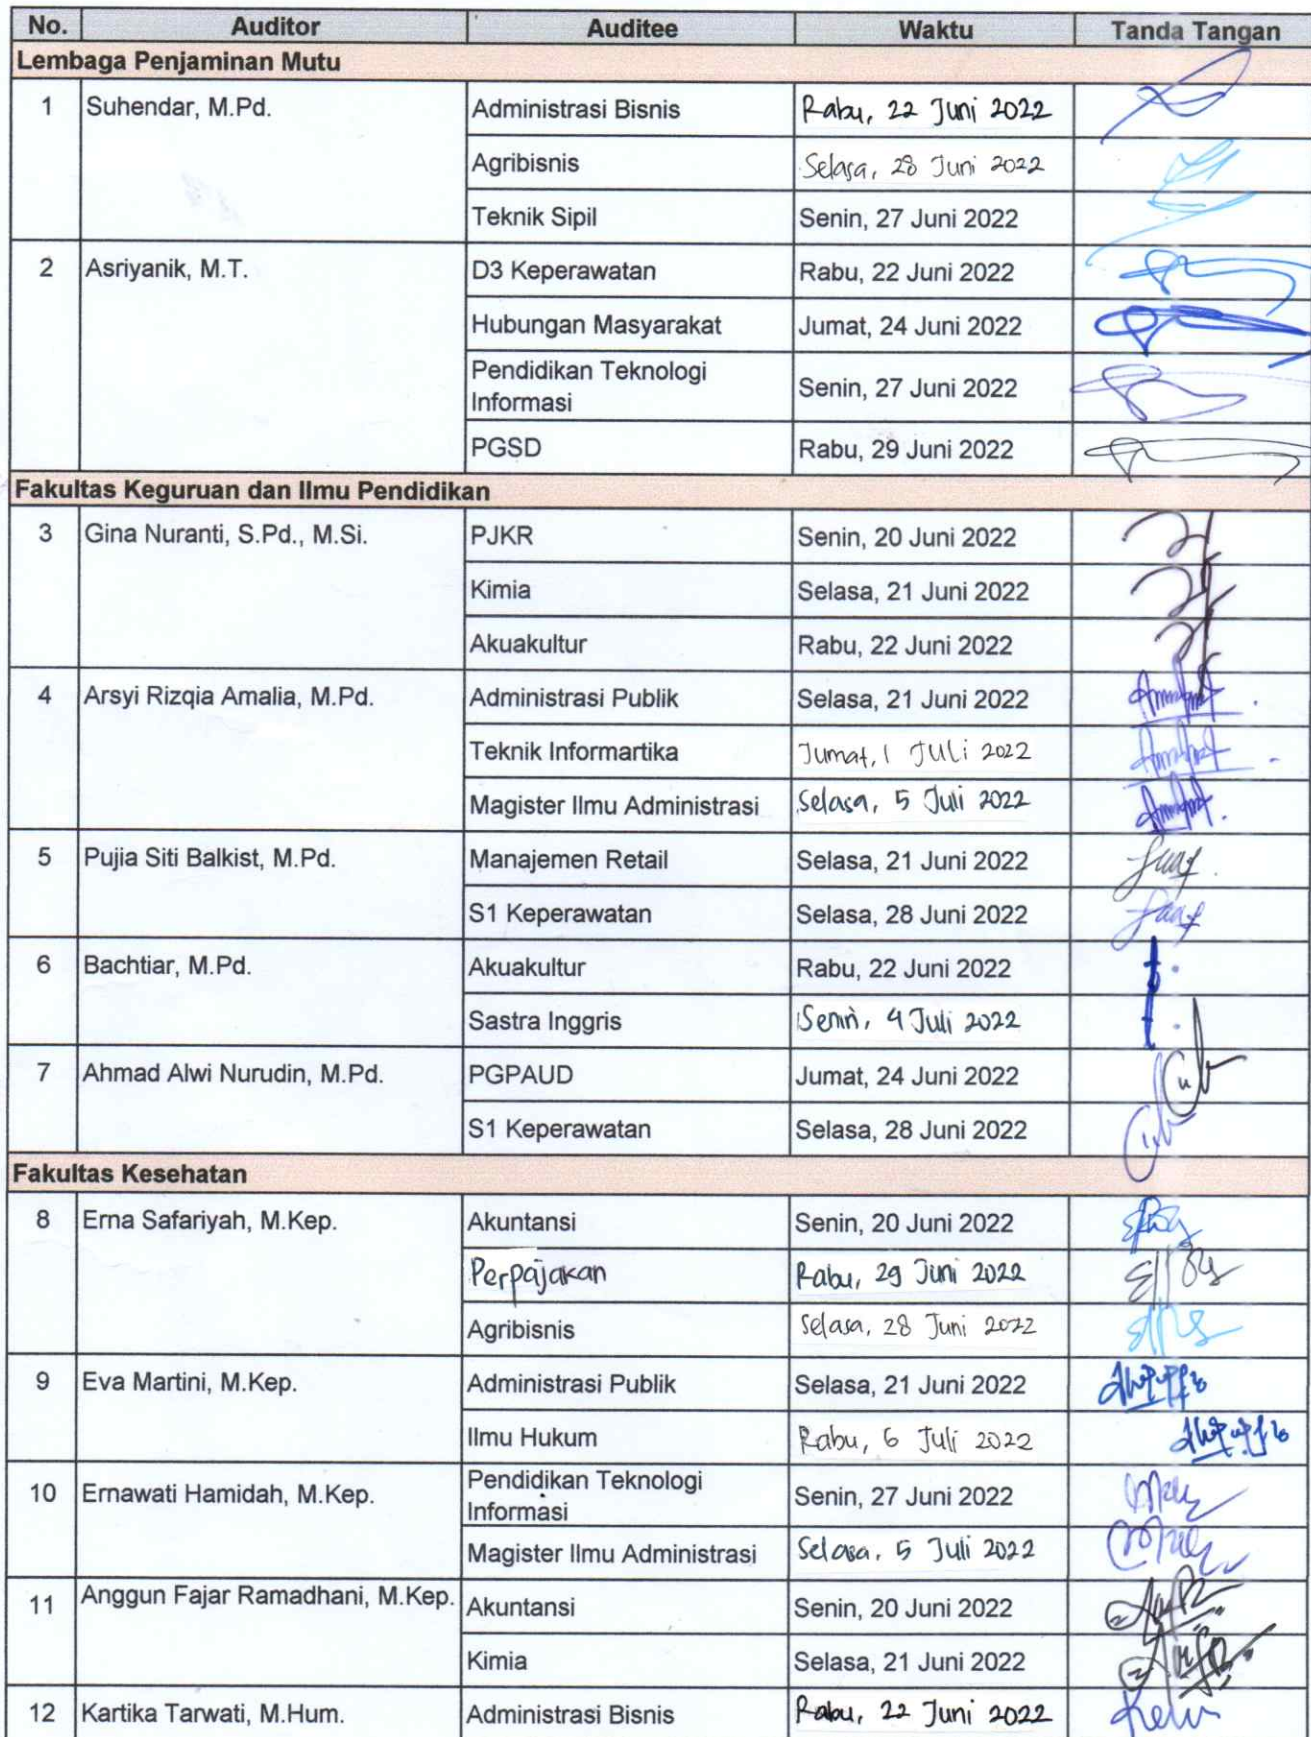 No. Auditor Auditee Waktu Tanda Tangan
Lembaga Penjaminan Mutu
1 Suhendar, M.Pd. Administrasi Bisnis Rabu, 22 Juni 2022
Agribisnis Selasa, 28 Juni 2022
Teknik Sipil Senin, 27 Juni 2022
2 Asriyanik, M.T. D3 Keperawatan Rabu, 22 Juni 2022
Hubungan Masyarakat Jumat, 24 Juni 2022
Pendidikan Teknologi
Informasi Senin, 27 Juni 2022
PGSD Rabu, 29 Juni 2022
Fakultas Keguruan dan Ilmu Pendidikan
3 Gina Nuranti, S.Pd., M.Si. PJKR Senin, 20 Juni 2022
Kimia Selasa, 21 Juni 2022
Akuakultur Rabu, 22 Juni 2022
4 Arsyi Rizqia Amalia, M.Pd. Administrasi Publik Selasa, 21 Juni 2022
Teknik Informartika Jumat, 1 Juli 2022
Magister Ilmu Administrasi Selasa, 5 Juli 2022
5 Pujia Siti Balkist, M.Pd. Manajemen Retail Selasa, 21 Juni 2022
S1 Keperawatan Selasa, 28 Juni 2022
6 Bachtiar, M.Pd. Akuakultur Rabu, 22 Juni 2022
Sastra Inggris Senin, 4 Juli 2022
7 Ahmad Alwi Nurudin, M.Pd. PGPAUD Jumat, 24 Juni 2022
S1 Keperawatan Selasa, 28 Juni 2022
Fakultas Kesehatan
8 Erna Safariyah, M.Kep. Akuntansi Senin, 20 Juni 2022
Perpajakan Rabu, 29 Juni 2022
Agribisnis Selasa, 28 Juni 2022
9 Eva Martini, M.Kep. Administrasi Publik Selasa, 21 Juni 2022
Ilmu Hukum Rabu, 6 Juli 2022
10 Ernawati Hamidah, M.Kep. Pendidikan Teknologi
Informasi Senin, 27 Juni 2022
Magister Ilmu Administrasi Selasa, 5 Juli 2022
11 Anggun Fajar Ramadhani, M.Kep. Akuntansi Senin, 20 Juni 2022
Kimia Selasa, 21 Juni 2022
12 Kartika Tarwati, M.Hum. Administrasi Bisnis Rabu, 22 Juni 2022